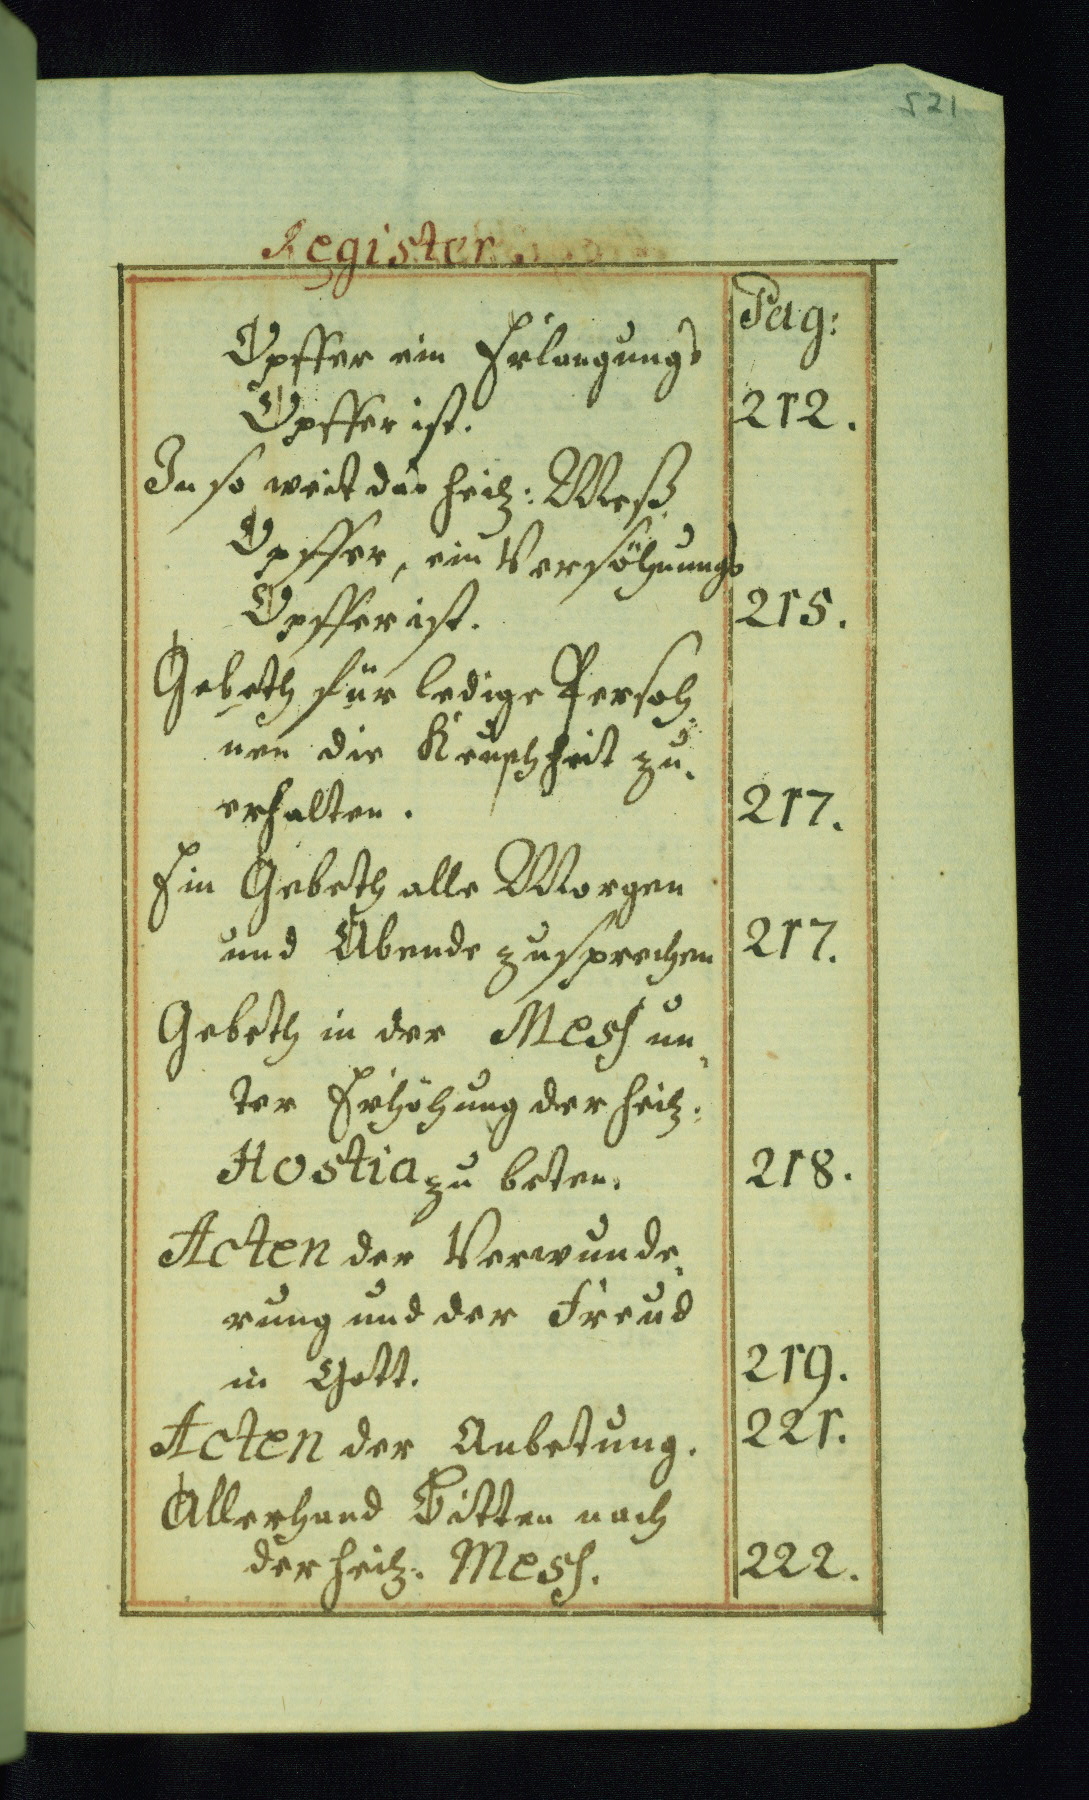 521
Register.
Pag:
Opffer ein Erlangungs
Opffer ist. 212.
In so weit das heil: Meß
Opffer, ein Versöhnungs
Opffer ist. 215.
Gebeth für ledige Persoh
nen die Keuschheit zu
erhalten. 217.
Ein Gebeth alle Morgen
und Abends zusprechen 217.
Gebeth in der Mess un
ter Erhöhung der heil:
Hostia zu beten. 218.
Acten der Verwunde
rung und der Freud
in Gott. 219.
Acten der Anbetung. 221.
Allerhand Bitten nach
der heil: Mess. 222.